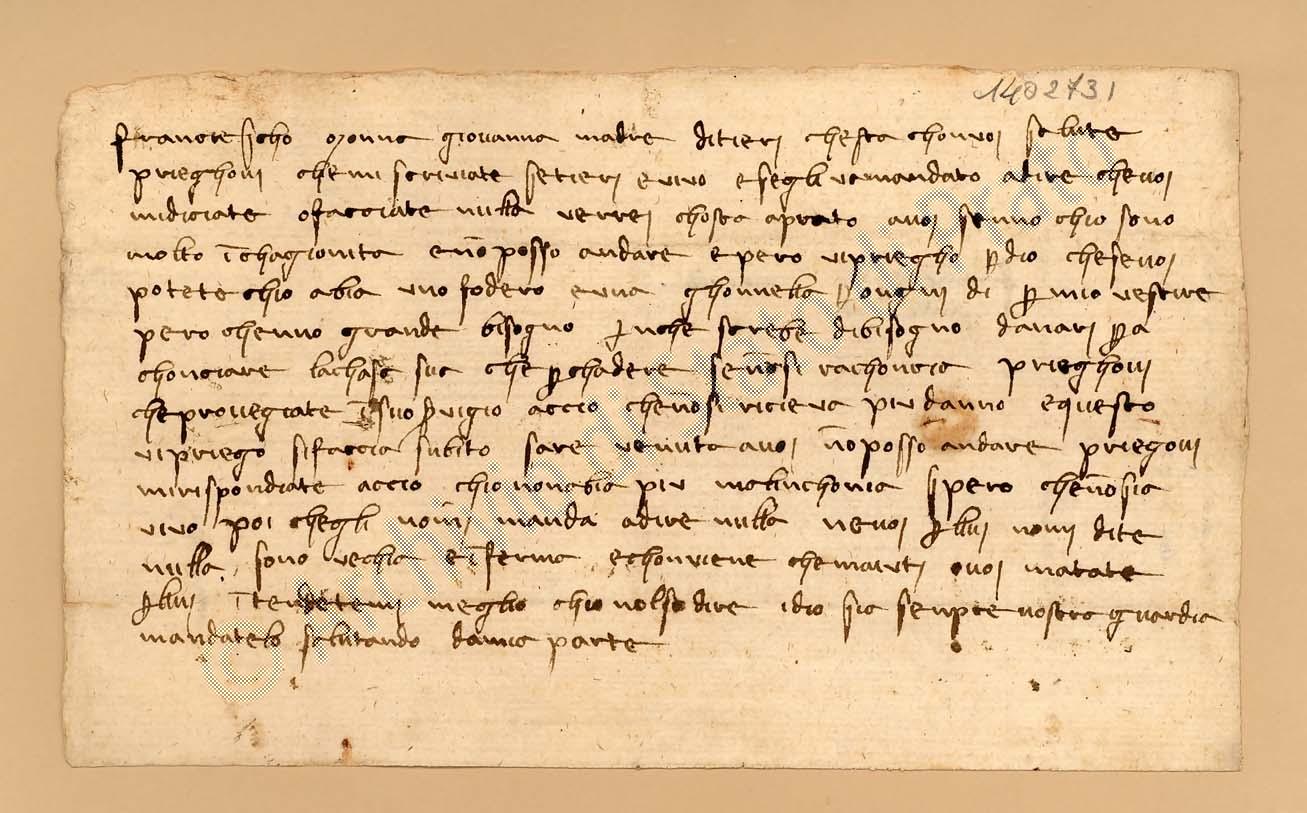 1402731
franciescho monna giovanna madre ditieri chesta chonvoi salute
prieghovi chemi scriviate setieri e vivo e segli vamandato adire chevoi
mi diciate o facciate nulla verrei chosta a prato a voi senno chio sono
molto īchagionita e nō posso andare e pero vi priegho p dio che se voi
potete chio abia uno fodero e una ghonnella p di p mio vestire
pero chenno grande bisogno anche sarebe di bisogno danari p a
chonciare lachasa sua che p chadere se nō si rachoncia prieghovi
che provegiate ī suo s̄vigio accio che nō si riceva piu danno e questo
vi priego si faccia subito sare venuta a voi nō posso andare priegovi
mi rispondiate accio chio non abia piu malinchonia spero che nō sia
vivo poi chegli nō mi manda a dire nulla ne voi p llui nomi dite
nulla sono vechia e īferma e chonviene che maiuti voi matate
p llui ītendetemi meglio chio nol so dire idio sia senpre vostra guardia
mandatelo salutando da mia parte
© Archivio di Stato di Prato